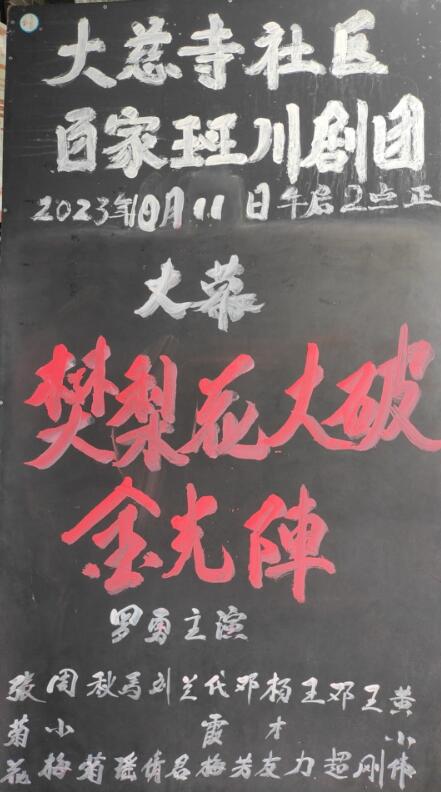 大慈寺社区
百家班川剧团
2023年10月11日午后2点正
大幕
樊梨花大破
金光陣
罗勇主演
张菊花 周小梅 秋菊 马瑶 刘倩 兰君 代霞梅 邓芳 杨才友 王力 邓超 王刚 黄小伟